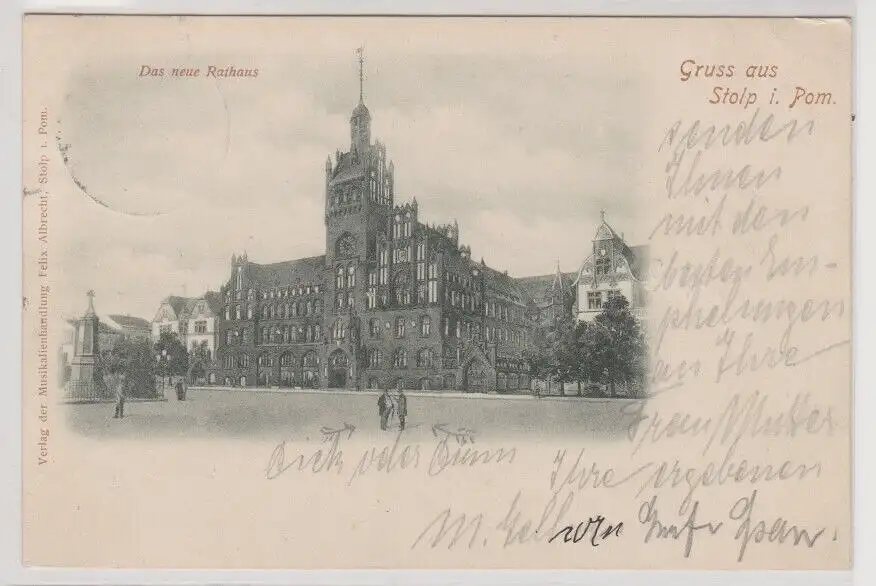 Das neue Rathaus
Gruss aus
Stolp i. Pom.
Verlag der Musikalienhandlung Felix Albrecht, Stolp i. Pom.
senden
Ihnen
mit den
besten Em-
pfehlungen
an Ihre
Frau Mutter
Ihre ergebenen
Dick oder Dünn
M.
von